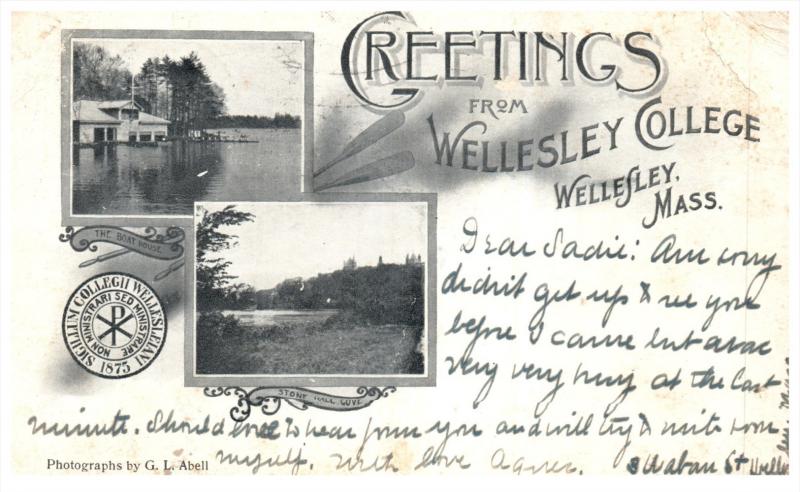 GREETINGS
FROM
WELLESLEY COLLEGE
WELLESLEY,
MASS.
THE BOAT HOUSE
SIGILLUM COLLEGII WELLESLEIANI
NON MINISTRARI SED MINISTRARE
1875
STONE HALL COVE
Dear Sadie: Am sorry
didn't get up & see you
before I came but was
very very busy at the last
minute. Should love to hear from you and will try & write soon
myself. With love Agnes. 8 Waban St Well
Photographs by G. L. Abell